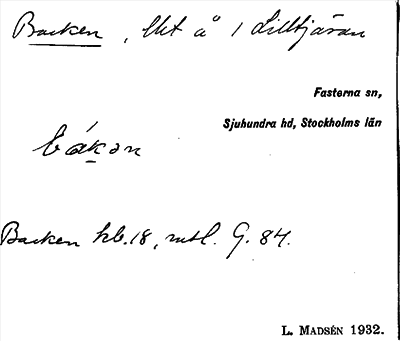 Backen, lht å 1 Lilltjäran
Fasterna sn,
Sjuhundra hd, Stockholms län
bákən
Backen hb. 18, mtl. G. 84.
L. MADSÉN 1932.